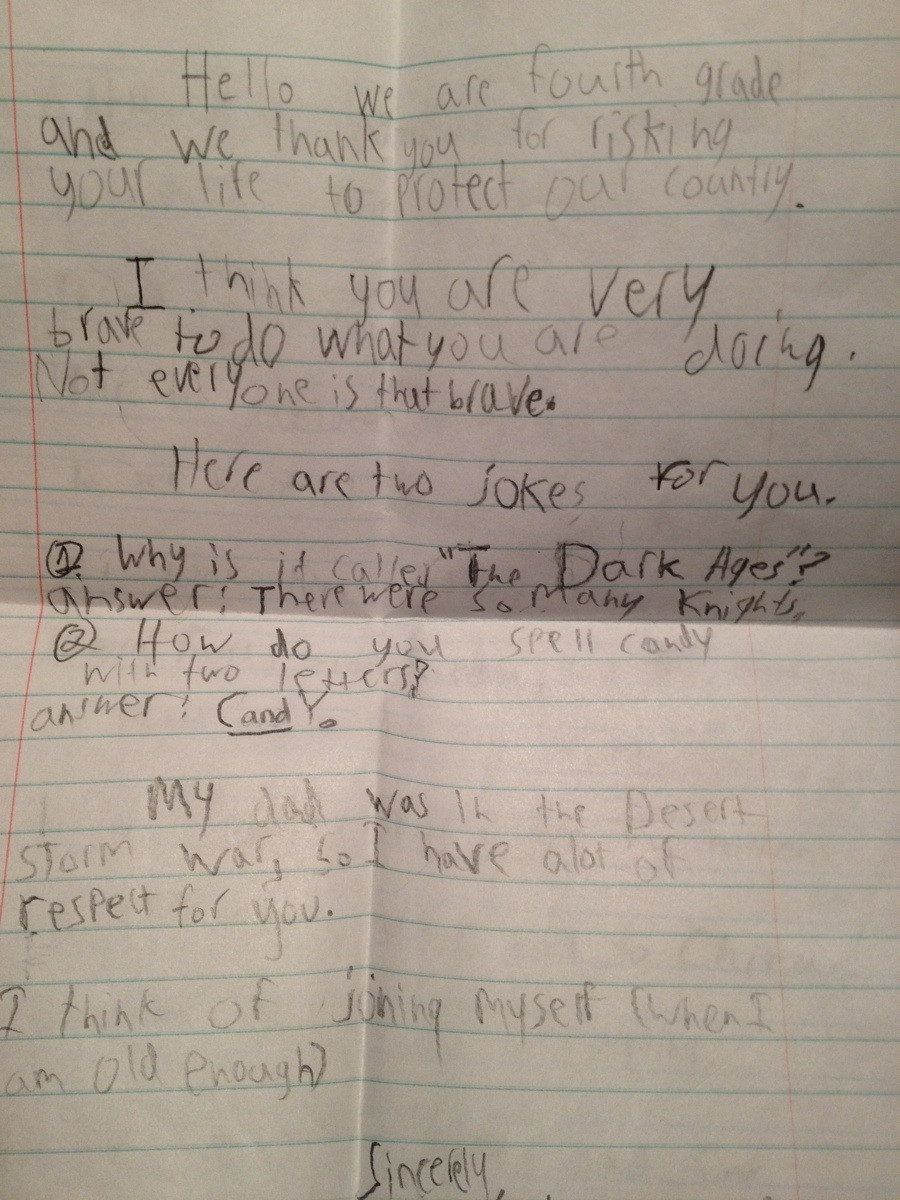 Hello we are fourth grade
and we thank you for risking
your life to protect our country.
I think you are very
brave to do what you are doing.
Not everyone is that brave.
Here are two jokes for you.
① Why is it called "The Dark Ages"?
answer: There were so many Knights.
② How do you spell candy
with two letters?
answer: CandY.
My dad was in the Desert
storm war, so I have alot of
respect for you.
I think of joining myself (when I
am old enough)
Sincerely,